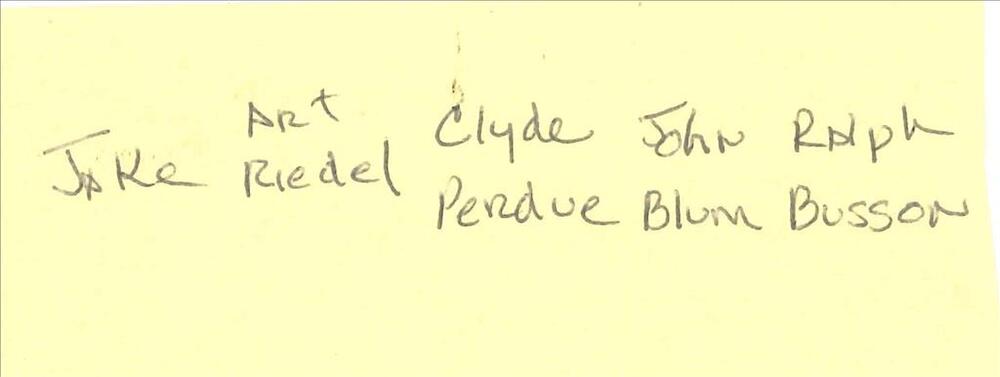 Art Clyde John Ralph
Jake Riedel Perdue Blum Busson